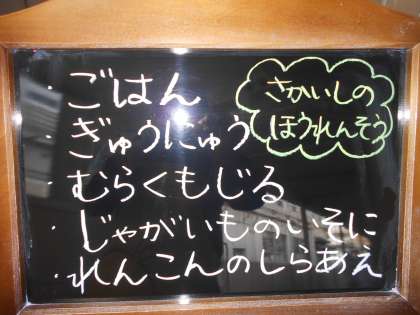 ・ごはん
・ぎゅうにゅう
・むらくもじる
・じゃがいものいそに
・れんこんのしらあえ
さかいしの
ほうれんそう